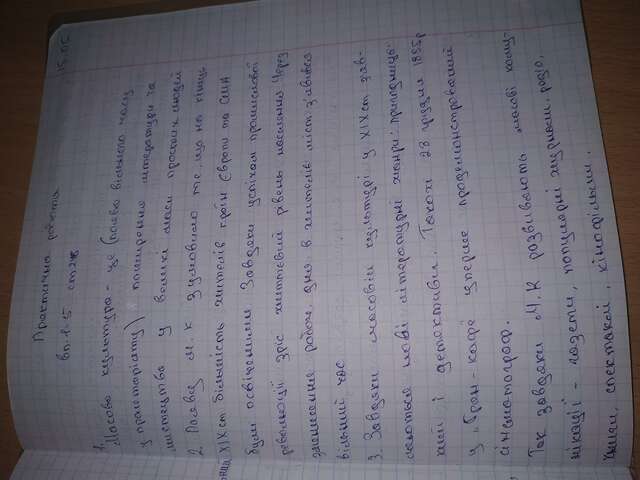 15.05
Практична робота
вп. 1-5 ст
1. Масова культура - це (поява вільного часу
у пролетаріату) поширення літератури та
мистецтва у великі маси простих людей
2. Появу м. к зумовило те що на кінець
XIX ст більшість жителів країн Європи та США
були освіченими. Завдяки успіхам промислової
революції зріс життєвий рівень населення. Через
зменшення работи, дня в жителів міст з'явився
вільний час
3. Завдяки масовій культурі у XIX ст зав-
ляються нові літературні жанри: пригодниць-
кий і детективи. Також 28 грудня 1895р
у "Гран-кафе уперше продемонстрований
сінематограф.
Так завдяки М.К розвивають масові кому-
нікації - газети, популярні журнали, радіо,
книги, спектаклі, кінофільми.